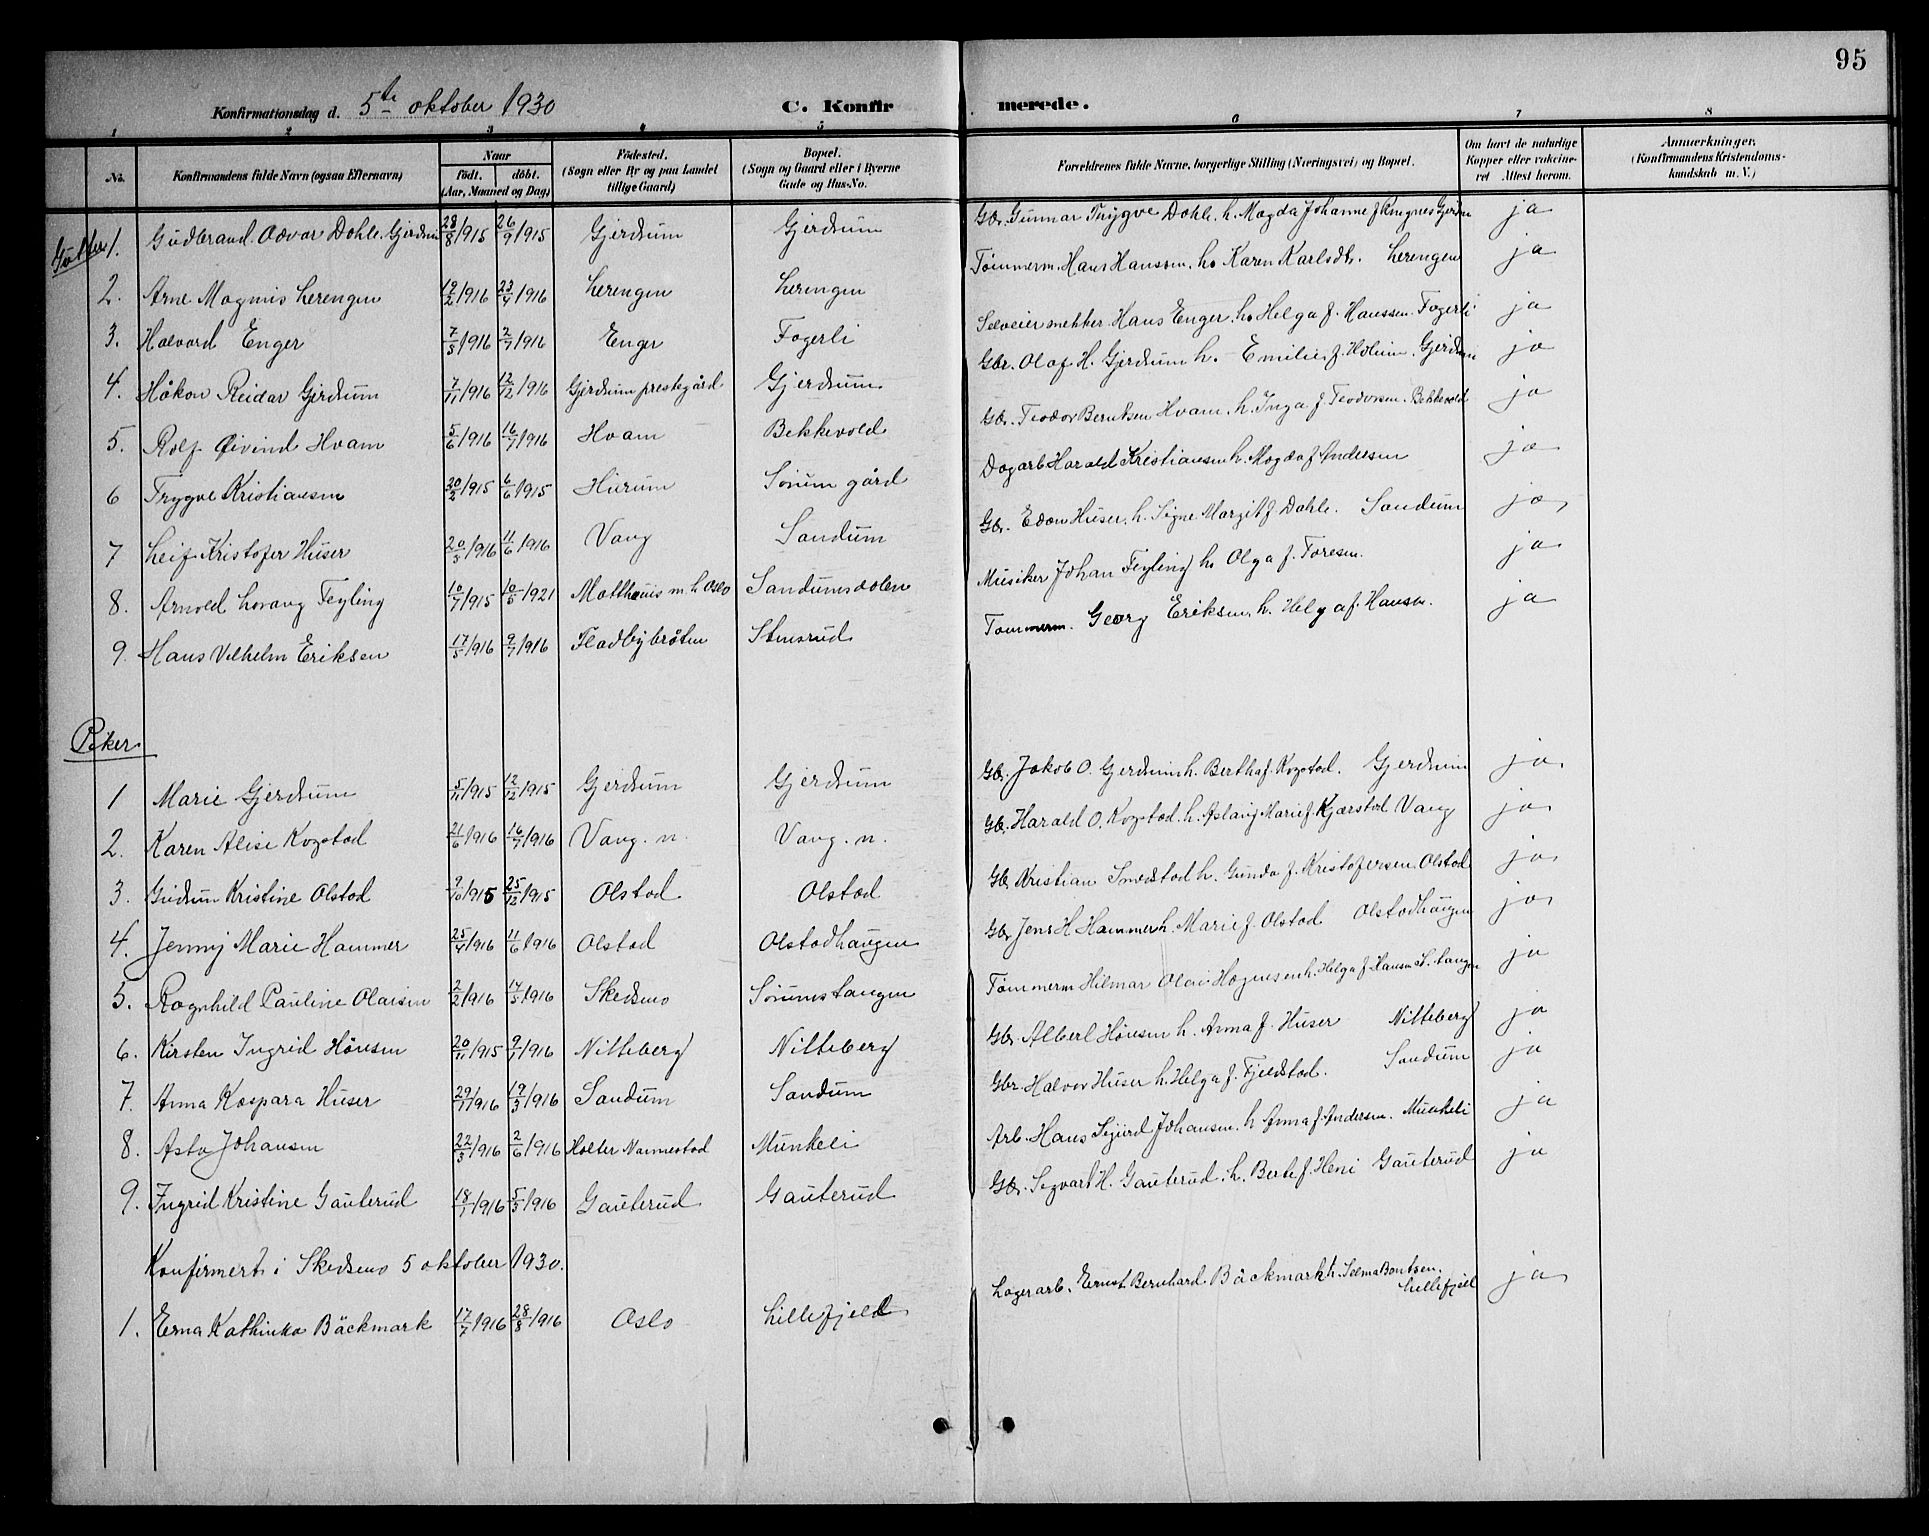 95
Konfirmationsdag d. 5te oktober 1930 C. Konfirmerede.
1 2 3 4 5 6 7 8
No. Konfirmandens fulde Navn (ogsaa Efternavn) Naar födt. döbt. (Aar, Maaned og Dag) Födested. (Sogn eller By og paa Landet tillige Gaard) Bopæl. (Sogn og Gaard eller i Byerne Gade og Hus-No. Forældrenes fulde Navne, borgerlige Stilling (Næringsvei) og Bopæl. Om havt de naturlige Kopper eller vakcineret Attest herom. Anmærkninger. (Konfirmandens Kristendomskundskab m. V.)
Gutter
1. Gudbrand Odvar Dahle Gjerdrum 28/8 1915 26/9 1915 Gjerdrum Gjerdrum Gbr. Gunnar Trygve Dahle. h. Magda Johanne f. Gjerdrum ja
2. Arne Magnus Lerengen 19/2 1916 23/4 1916 Lerengen Lerengen Tømmerm. Hans Hanssen. h. Karen Karlsdt. Lerengen ja
3. Halvard Enger 7/5 1916 2/7 1916 Enger Fagerli Selveier snekker Hans Enger. h. Helga f. Hanssen. Fagerli ja
4. Håkon Reidar Gjerdrum 7/11 1916 12/12 1916 Gjerdrum prestegård Gjerdrum Gbr. Olaf H. Gjerdrum h. Emilie f. Holum. Gjerdrum ja
5. Rolf Øivind Hvam 5/6 1916 16/7 1916 Hvam Bekkevold Gbr. Teodor Berntsen Hvam. h. Inga f. Teodorsen. Bekkevold ja
6 Trygve Kristiansen 20/2 1915 6/6 1915 Hurum Sørum gård Dagarb Harald Kristiansen h. Magda f. Andersen ja
7 Leif Kristofer Huser 20/3 1916 11/6 1916 Vang Sandum Gbr. Edon Huser. h. Signe Margit f. Dahle. Sandum ja
8. Arnold Lorang Feyling 10/7 1915 10/5 1921 Mattheus m. h Oslo Sandumsdalen Musiker Johan Feyling h. Olga f. Toresen. ja
9. Hans Vilhelm Eriksen 17/5 1916 9/7 1916 Fladbybråten Stensrud Tømmerm. Georg Eriksen. h. Helga f. Hansen. ja
Piker
1 Marie Gjerdrum 5/11 1915 12/12 1915 Gjerdrum Gjerdrum Gbr. Jakob O. Gjerdrum h. Bertha f. Kogstad. Gjerdrum ja
2. Karen Alise Kogstad 21/6 1916 16/7 1916 Vang. n. Vang. n. Gbr. Harald O. Kogstad. h. Aslaug Marie f. Kjærstad Vang ja
3. Gudrun Kristine Olstad 9/10 1915 25/12 1915 Olstad Olstad Gbr Kristian Smedstad h. Gunda f. Kristofersen. Olstad ja
4. Jenny Marie Hammer 25/4 1916 11/6 1916 Olstad Olstadhaugen Gbr Jens H Hammer h. Marie f. Olstad Olstadhaugen ja
5. Ragnhild Pauline Olaisen 2/2 1916 14/5 1916 Skedsmo Sørumstangen Tømmerm Hilmar Olai Hagensen h. Helga f. Hansen S. tangen ja
6. Kirsten Ingrid Hønsen 20/11 1915 9/1 1916 Nitteberg Nitteberg Gbr. Albert Hønsen h. Anna f. Huser Nitteberg ja
7. Anna Kaspara Huser 29/1 1916 19/3 1916 Sandum Sandum Gbr. Halvor Huser h. Helga f. Fjeldstad. Sandum ja
8. Asta Johansen 22/3 1916 2/6 1916 Holter Nannestad Munkeli Arb. Hans Sigurd Johansen. h Anna f. Andersen. Munkeli ja
9. Ingrid Kristine Gauterud 18/1 1916 5/3 1916 Gauterud Gauterud Gbr. Sigvart H. Gauterud. h. Berte f. Heni Gauterud ja
Konfirmert i Skedsmo 5 oktober 1930.
1. Erna Kathinka Bäckmark 17/7 1916 28/8 1916 Oslo Lillefjeld Lagerarb. Ernst Bernhard Bäckmark h. Selma Lillefjeld ja